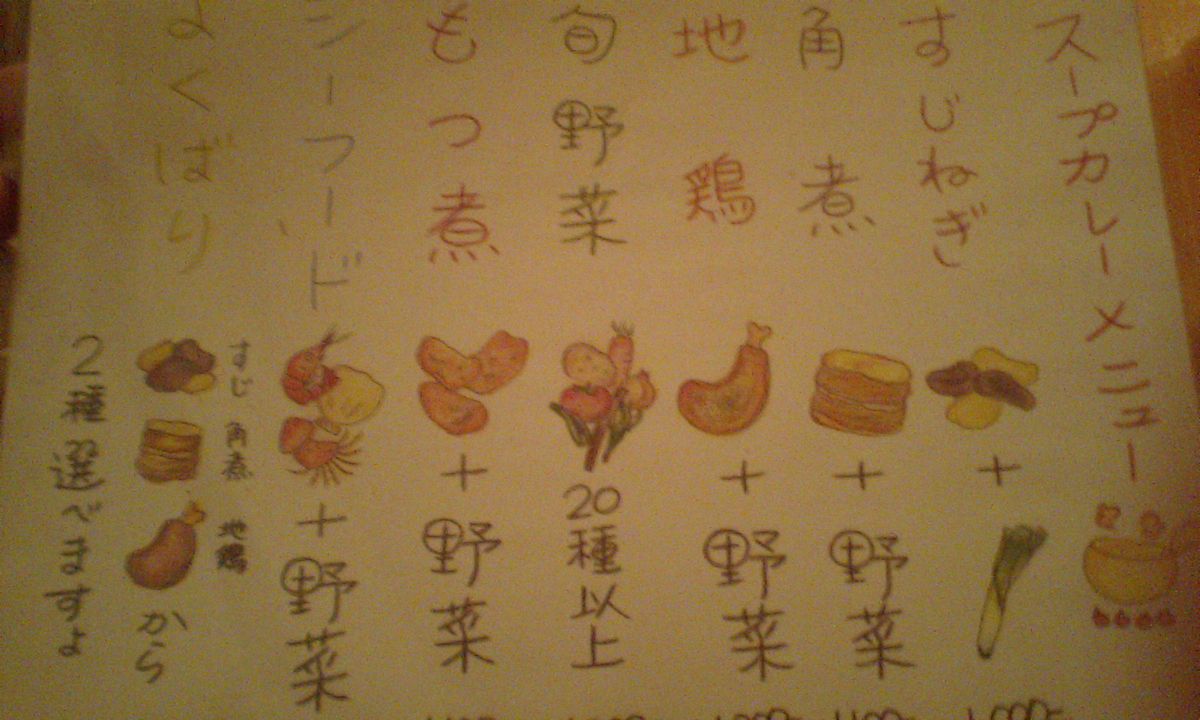 スープカレーメニュー
すじねぎ
+
角煮
+野菜
地鶏
+野菜
旬野菜
20種以上
もつ煮
+野菜
シーフード
+野菜
よくばり
すじ
角煮
地鶏
から
2種選べますよ